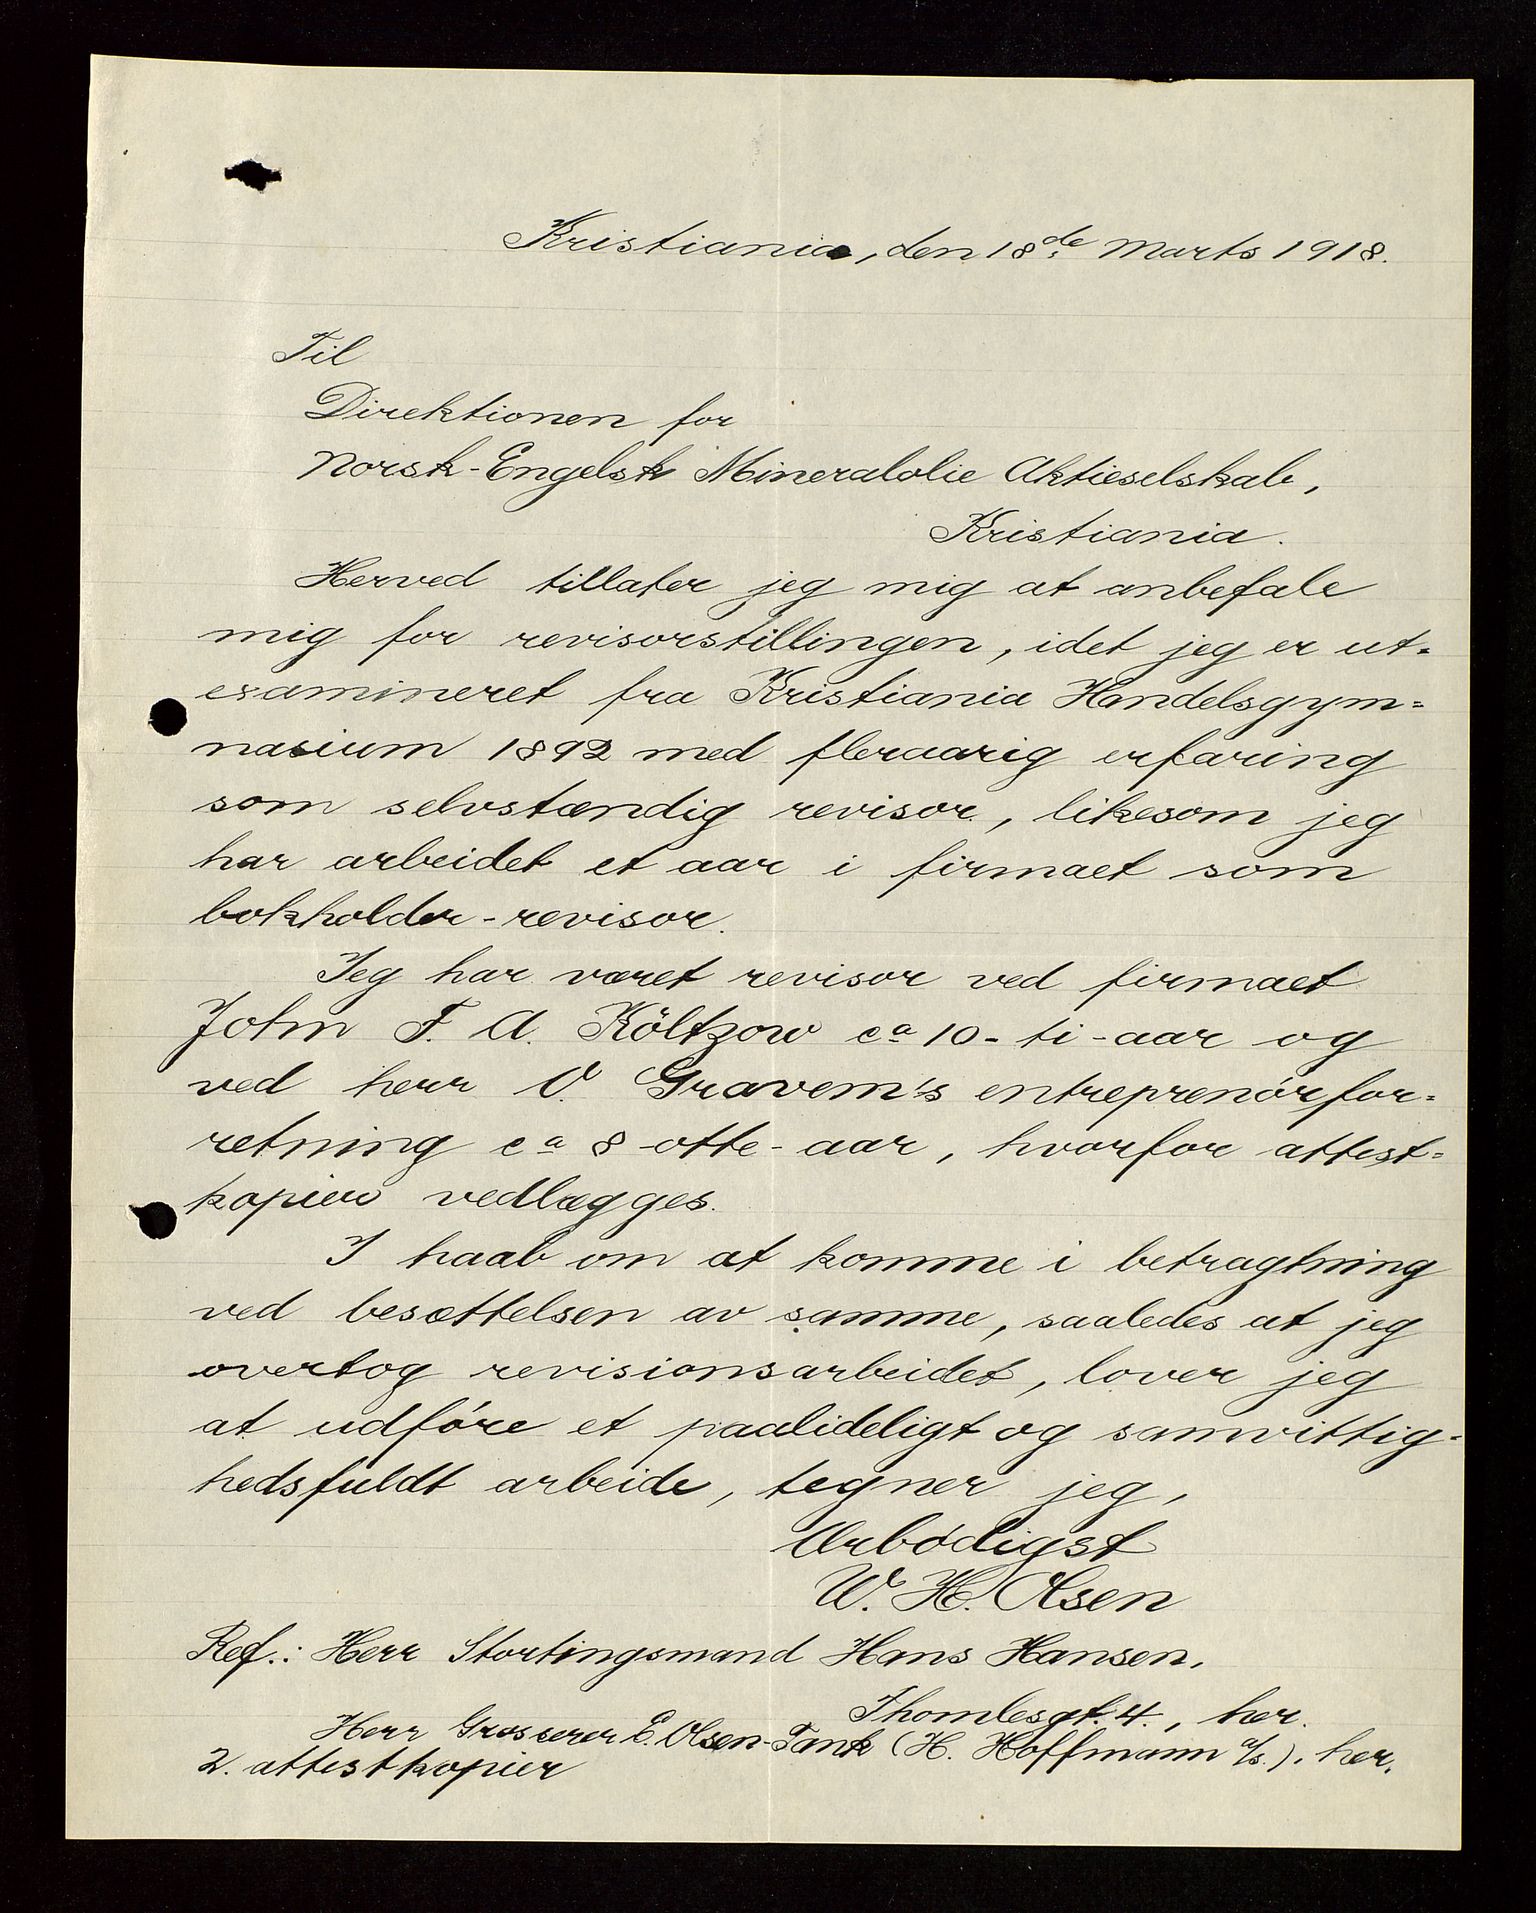 Kristiania, den 18de Marts 1918.
Til
Direktionen for
Norsk-Engelsk Mineralolie Aktieselskab,
Kristiania.
Herved tillater jeg mig at anbefale
mig for revisorstillingen, idet jeg er ut-
examineret fra Kristiania Handelsgym=
nasium 1892 med fleraarig erfaring
som selvstændig revisor, likesom jeg
har arbeidet et aar i firmaet som
bokholder-revisor.
Jeg har været revisor ved firmaet
John F. A. Költzow ca 10- ti - aar og
ved herr O. Gravem's entreprenörfor=
retning ca 8 -otte- aar, hvorfor attest=
kopier vedlægges.
I haab om at komme i betragtning
ved besættelsen av samme, saaledes at jeg
overtog revisionsarbeidet, lover jeg
at udföre et paalideligt og samvittig-
hedsfuldt arbeide, tegner jeg,
Ærbödigst
W. H. Olsen
Ref.: Herr Stortingsmand Hans Hansen,
Thomlesgt. 4., her.
Herr Grosserer E. Olsen-Tank (H. Hoffmann a/s.), her.
2. attestkopier